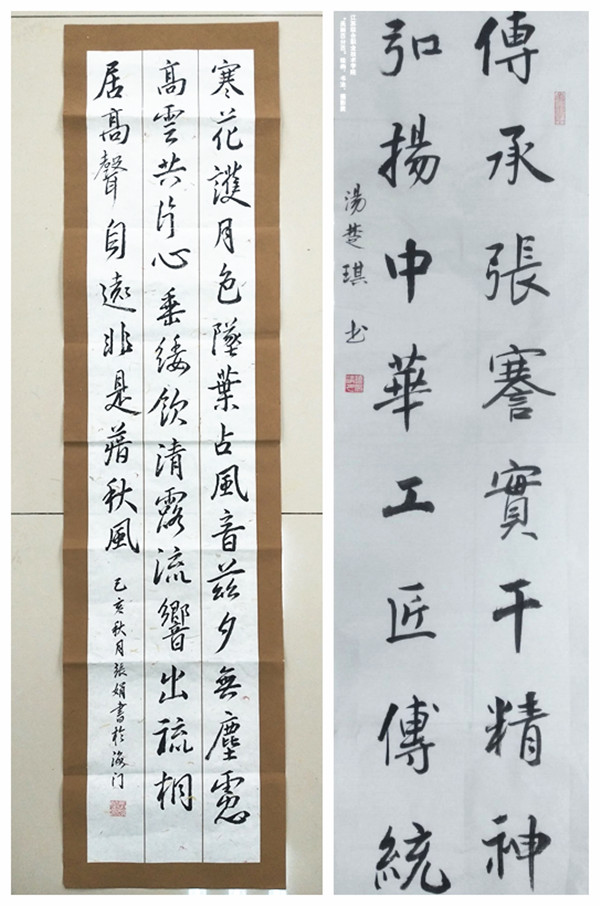 寒花護月色墜葉占風音茲夕無塵慮
高雲共片心垂緌飲清露流響出疏桐
居高聲自遠非是藉秋風
己亥秋月張娟書於海门
傳承張謇實干精神
弘揚中華工匠傳統
湯楚琪书